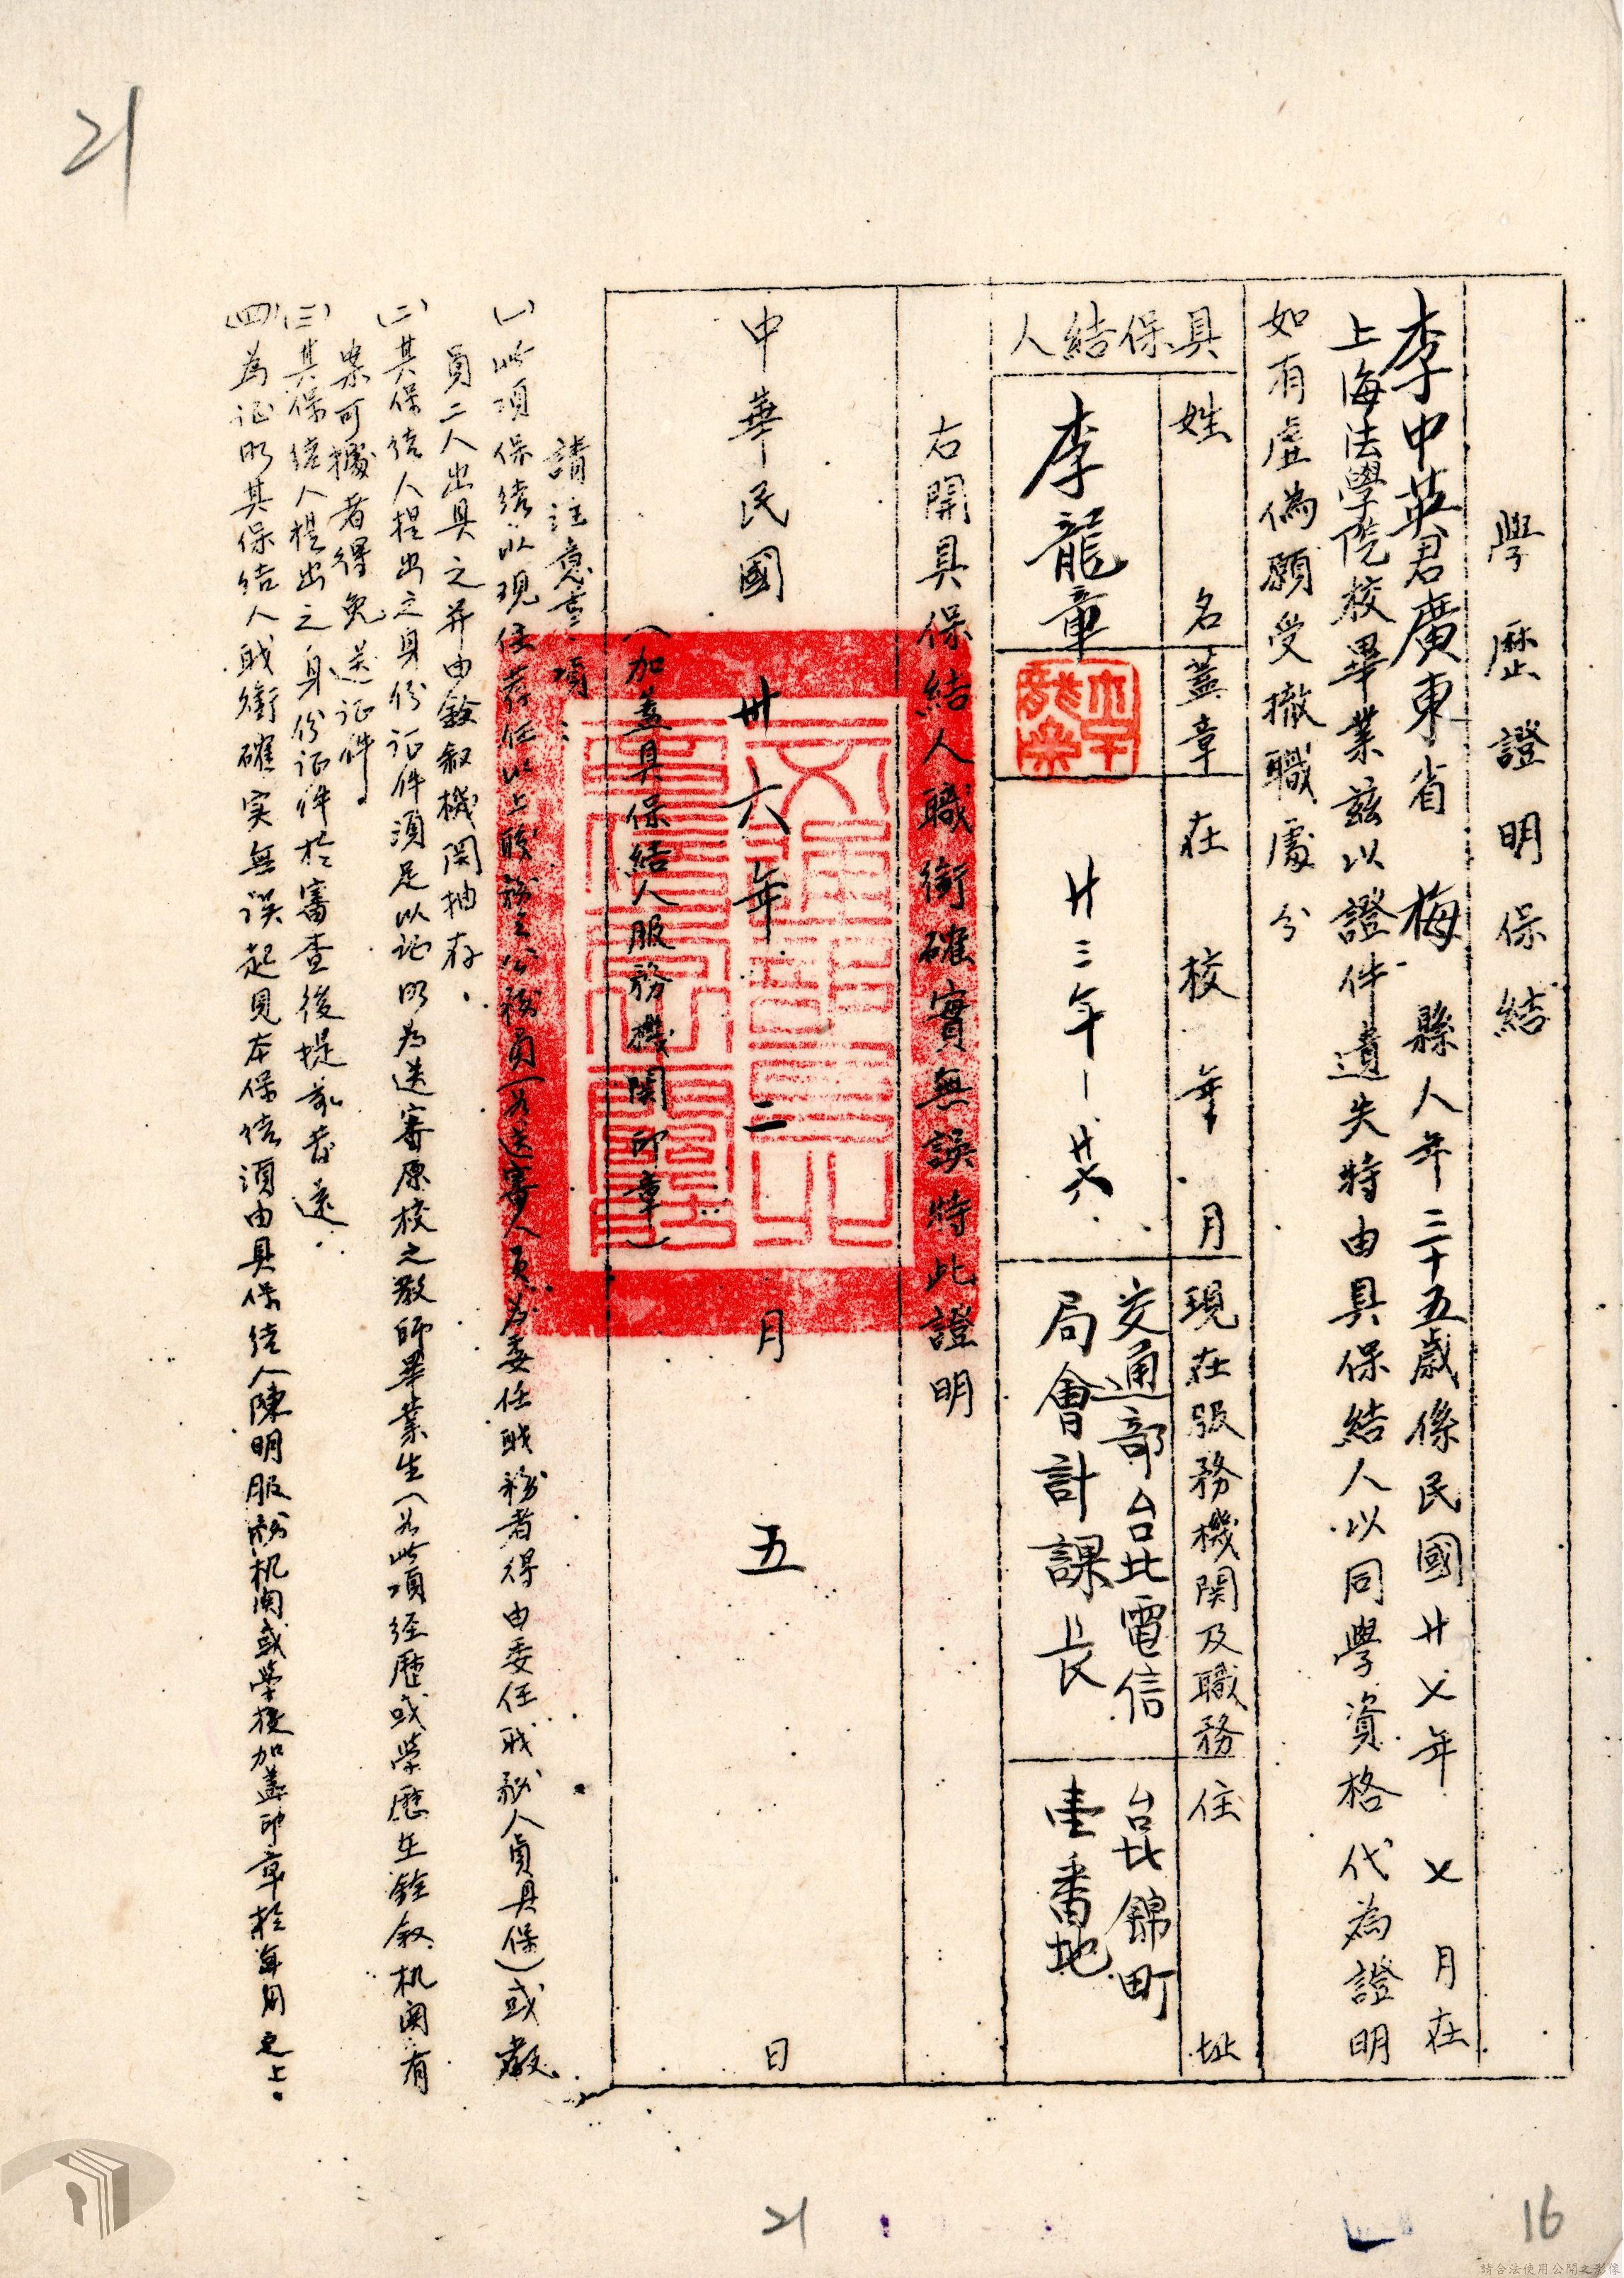 21
學歷證明保結
李中英君廣東省梅縣人年三十五歲係民國廿七年七月在
上海法學院校畢業茲以證件遺失特由具保結人以同學資格代為證明
如有虛偽願受撤職處分
具保結人
姓名
蓋章
在校年月
現在服務機関及職務
住址
李龍章
廿三年—廿六
交通部台北電信
局會計課長
台北錦町
壹番地
右開具保結人職銜確實無誤特此證明
中華民國卅六年二月五日
(加蓋具保結人服務機関印章)
請注意事項:
(一)此項保結以現任荐任以上職務之公務員(如送審人員為委任職務者得由委任職務人員具保)或教
員二人出具之并由銓叙機関抽存.
(二)其保结人提出之身份证件須足以证明為送審原校之教師畢業生(如此項经歷或學歷在銓叙机関有
案可據者得免送证件.
(三)其保结人提出之身份证件於審查後提前發還.
(四)為证明其保结人职銜確実無误起見本保结須由具保结人陳明服務机関或學校加蓋印章於年月之上.
21
16
請合法使用公開之影像